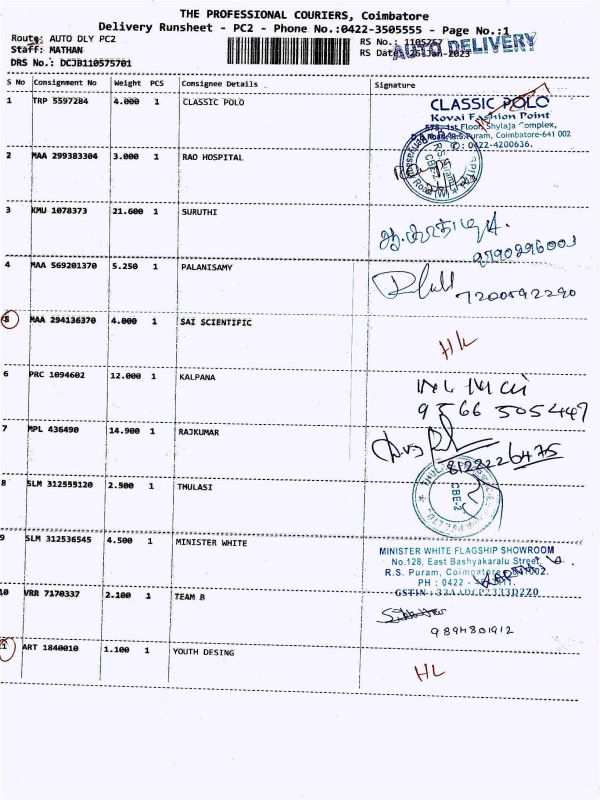 THE PROFESSIONAL COURIERS, Coimbatore
Delivery Runsheet - PC2 - Phone No.:0422-3505555 - Page No.:1
Route: AUTO DLY PC2
RS No.: 1105757
AUTO DELIVERY
Staff: MATHAN
RS Date: 26-Jan-2023
DRS No.: DCJB110575701
S No Consignment No Weight PCS Consignee Details Signature
1 TRP 5597284 4.000 1 CLASSIC POLO
CLASSIC POLO
Kovai Fashion Point
575, 1st Floor, Shylaja Complex,
Road, R.S.Puram, Coimbatore-641 002
✆: 0422-4200636.
2 MAA 299383304 3.000 1 RAO HOSPITAL
3 KMU 1078373 21.600 1 SURUTHI
9790296001
4 MAA 569201370 5.250 1 PALANISAMY
7200592290
5 MAA 294136370 4.000 1 SAI SCIENTIFIC
HL
6 PRC 1094602 12.000 1 KALPANA
9566505447
7 MPL 436490 14.900 1 RAJKUMAR
8122226475
8 SLM 312555120 2.500 1 THULASI
CBE-2
9 SLM 312536545 4.500 1 MINISTER WHITE
MINISTER WHITE FLAGSHIP SHOWROOM
No.128, East Bashyakaralu Street,
R.S. Puram, Coimbatore - 641 002.
PH : 0422 -
10 VRR 7170337 2.100 1 TEAM B
9894801912
11 ART 1840010 1.100 1 YOUTH DESING
HL